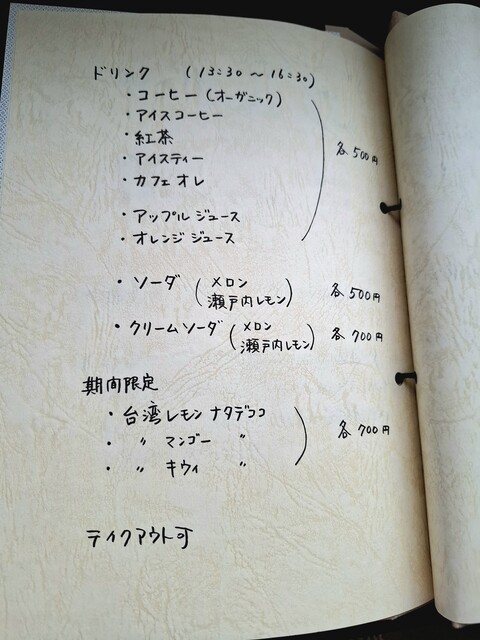 ドリンク (13:30 〜 16:30)
・コーヒー (オーガニック)
・アイスコーヒー
・紅茶
・アイスティー
・カフェオレ
各500円
・アップルジュース
・オレンジジュース
・ソーダ (メロン 瀬戸内レモン) 各500円
・クリームソーダ (メロン 瀬戸内レモン) 各700円
期間限定
・台湾レモンナタデココ
・〃 マンゴー 〃 各700円
・〃 キウイ 〃
テイクアウト可